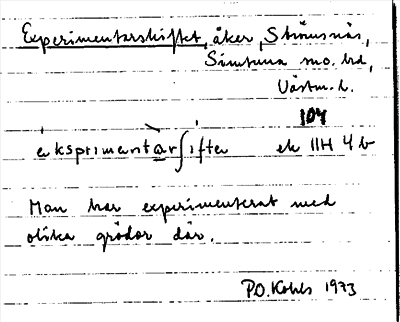 Experimentarskiftet, åker, Strömsnäs,
Simtuna sn. o. hd,
Västm. l.
104
éksprimentàrʃífte ek 11H 4 b
Man har experimenterat med
olika grödor där.
P.O. Kohls 1973